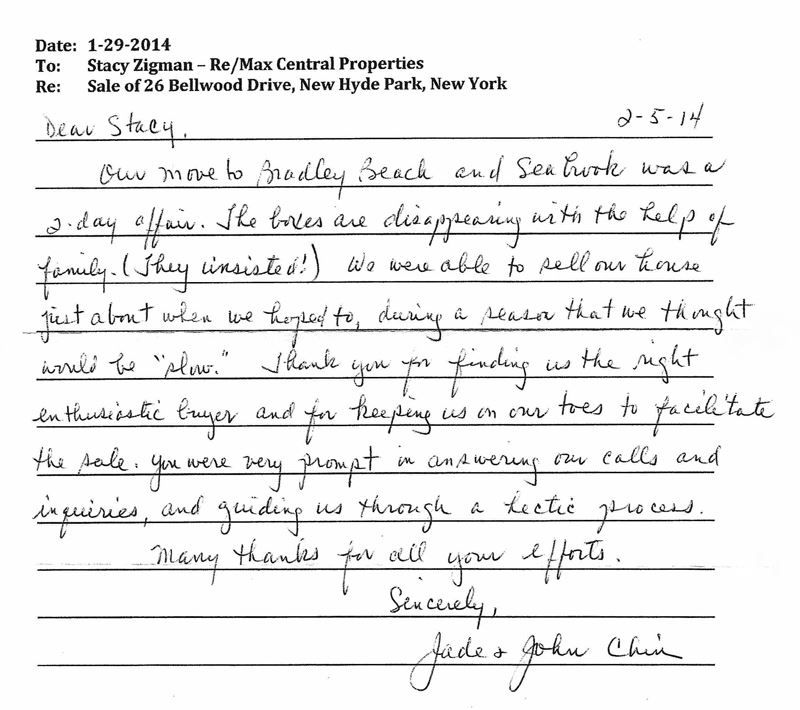 Date: 1-29-2014
To: Stacy Zigman – Re/Max Central Properties
Re: Sale of 26 Bellwood Drive, New Hyde Park, New York
Dear Stacy, 2-5-14
Our move to Bradley Beach and Seabrook was a
2-day affair. The boxes are disappearing with the help of
family. (They insisted!) We were able to sell our house
just about when we hoped to, during a season that we thought
would be "slow." Thank you for finding us the right
enthusiastic buyer and for keeping us on our toes to facilitate
the sale. You were very prompt in answering our calls and
inquiries, and guiding us through a hectic process.
Many thanks for all your efforts.
Sincerely,
Jade & John Chin